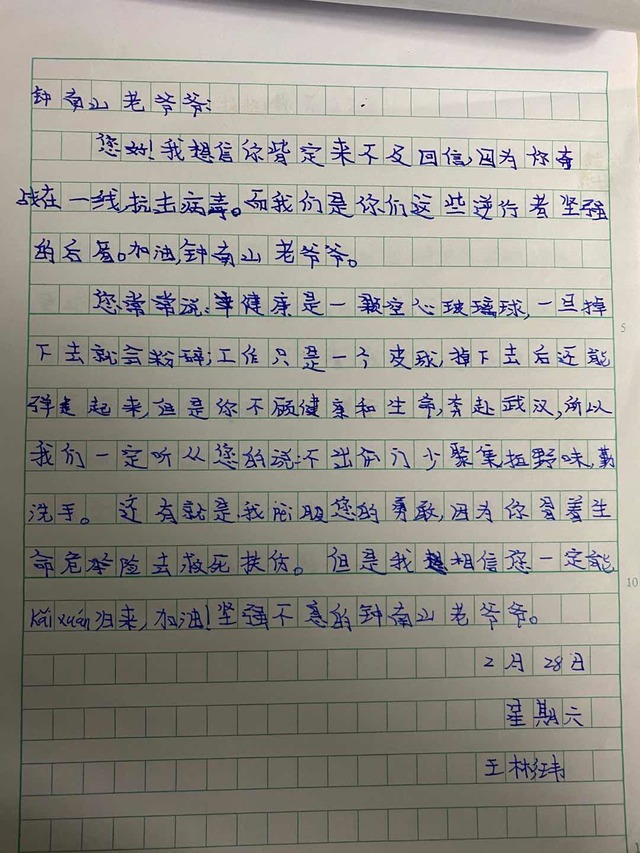 钟南山老爷爷:
您好!我想信你肯定来不及回信,因为你奋
战在一线,抗击病毒。而我们是你们这些逆行者坚强
的后盾。加油,钟南山老爷爷。
您常常说:健康是一颗空心玻璃球,一旦掉
下去就会粉碎;工作只是一个皮球,掉下去后还能
弹起来,但是你不顾健康和生命,奔赴武汉,所以
我们一定听从您的说:不出门少聚集拒野味,勤
洗手。还有就是我佩服您的勇敢,因为你冒着生
命危险去救死扶伤。但是我相信您一定能
kǎi xuán归来,加油!坚强不息的钟南山老爷爷。
2月28日
星期六
王彬玮
5
10